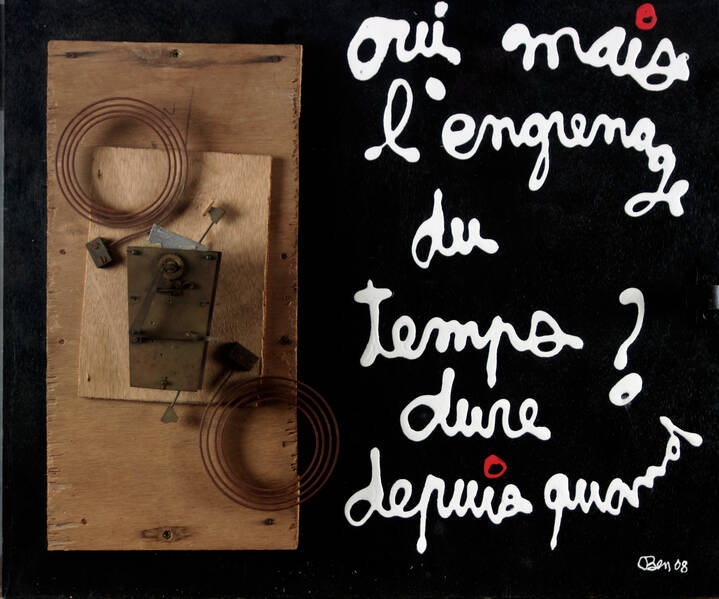 oui mais
l'engrenage
du
temps ?
dure
depuis quand
Ben 08